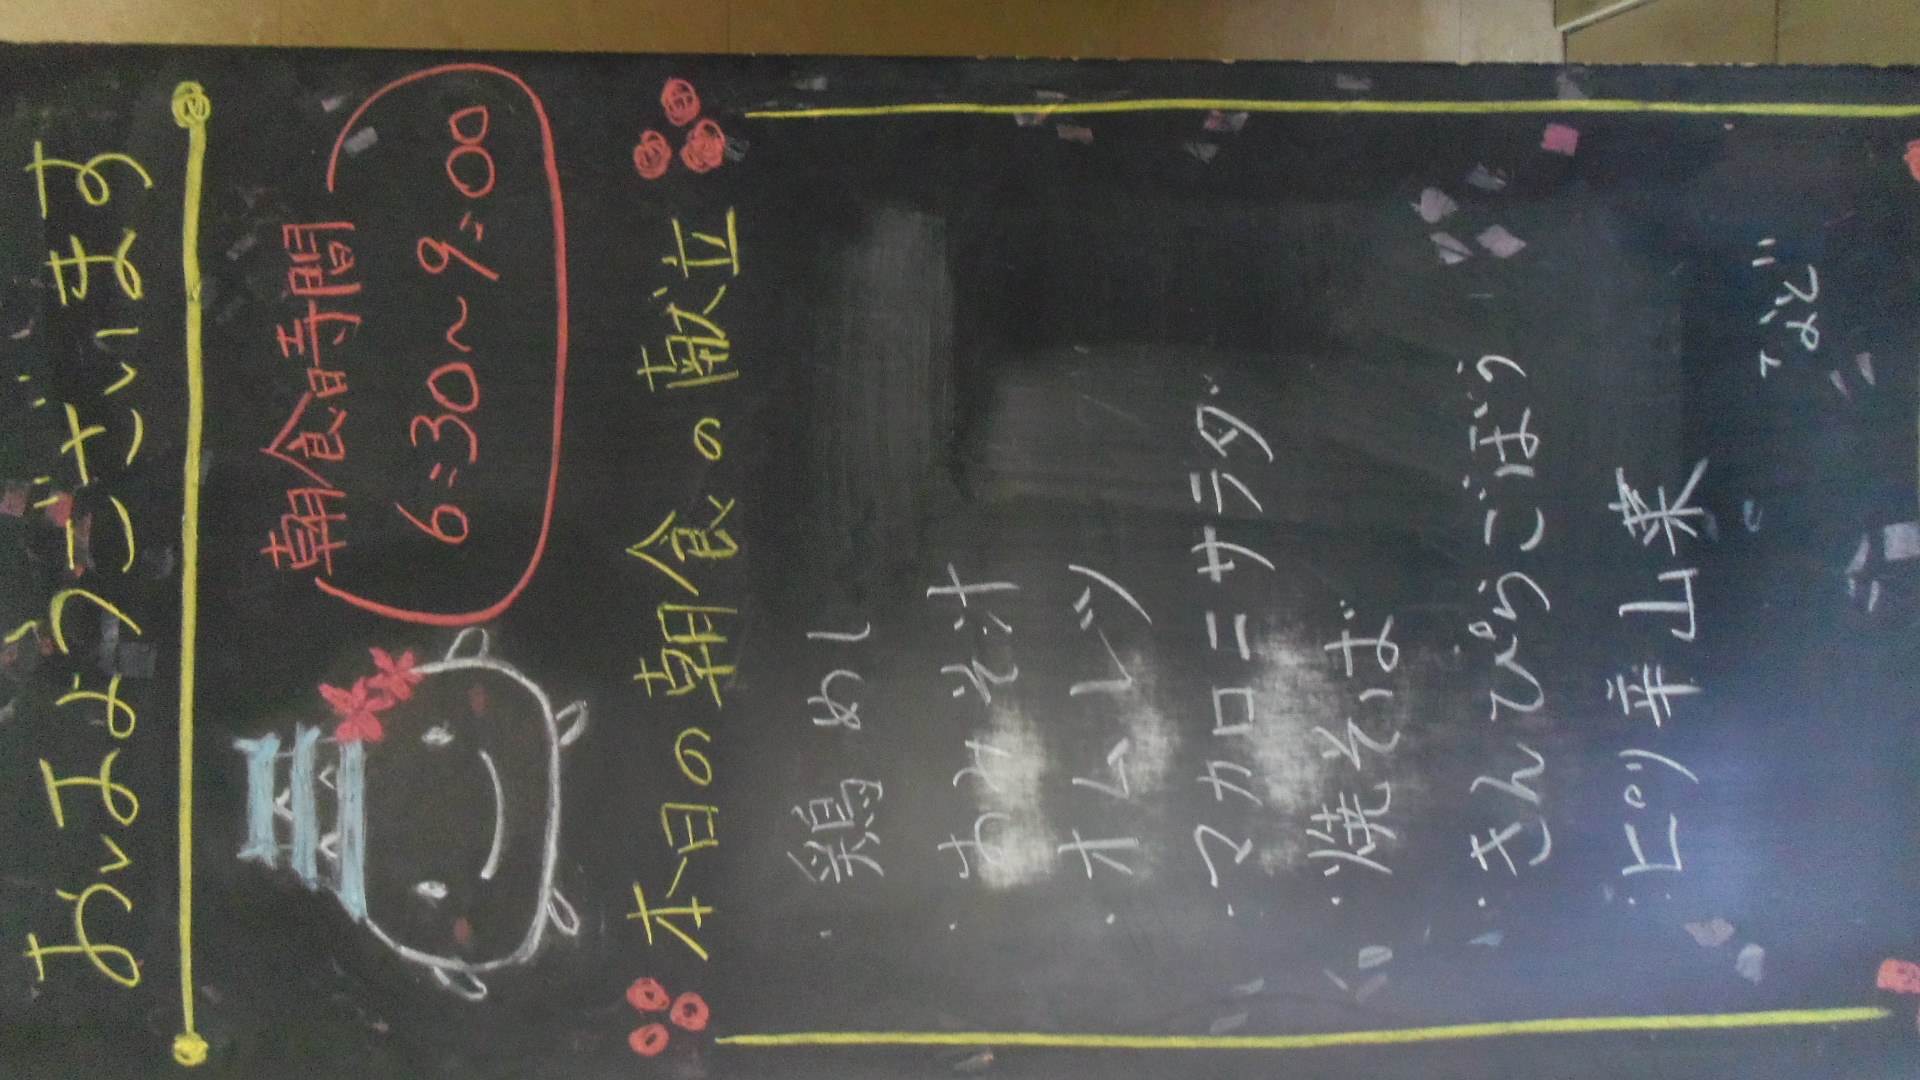 おはようございます
朝食時間
6:30～9:00
本日の朝食の献立
・鶏めし
・おみそ汁
・オムレツ
・マカロニサラダ
・焼そば
・きんぴらごぼう
・ピリ辛山菜
など